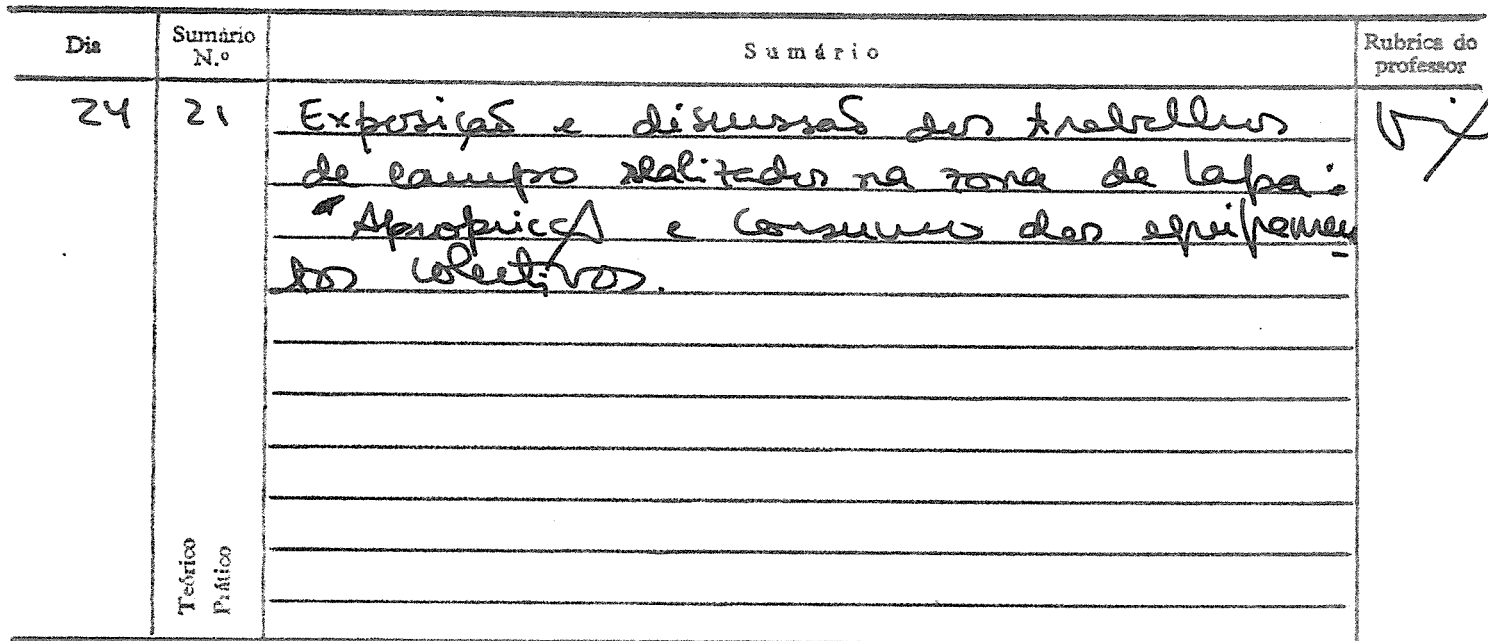 Dia
Sumário N.º
Sumário
Rubrica do professor
24
21
Exposição e discussão dos trabalhos
de campo realizados na zona da Lapa:
"Apropriação e Consumo dos equipamen
tos colectivos.
Teórico
Prático